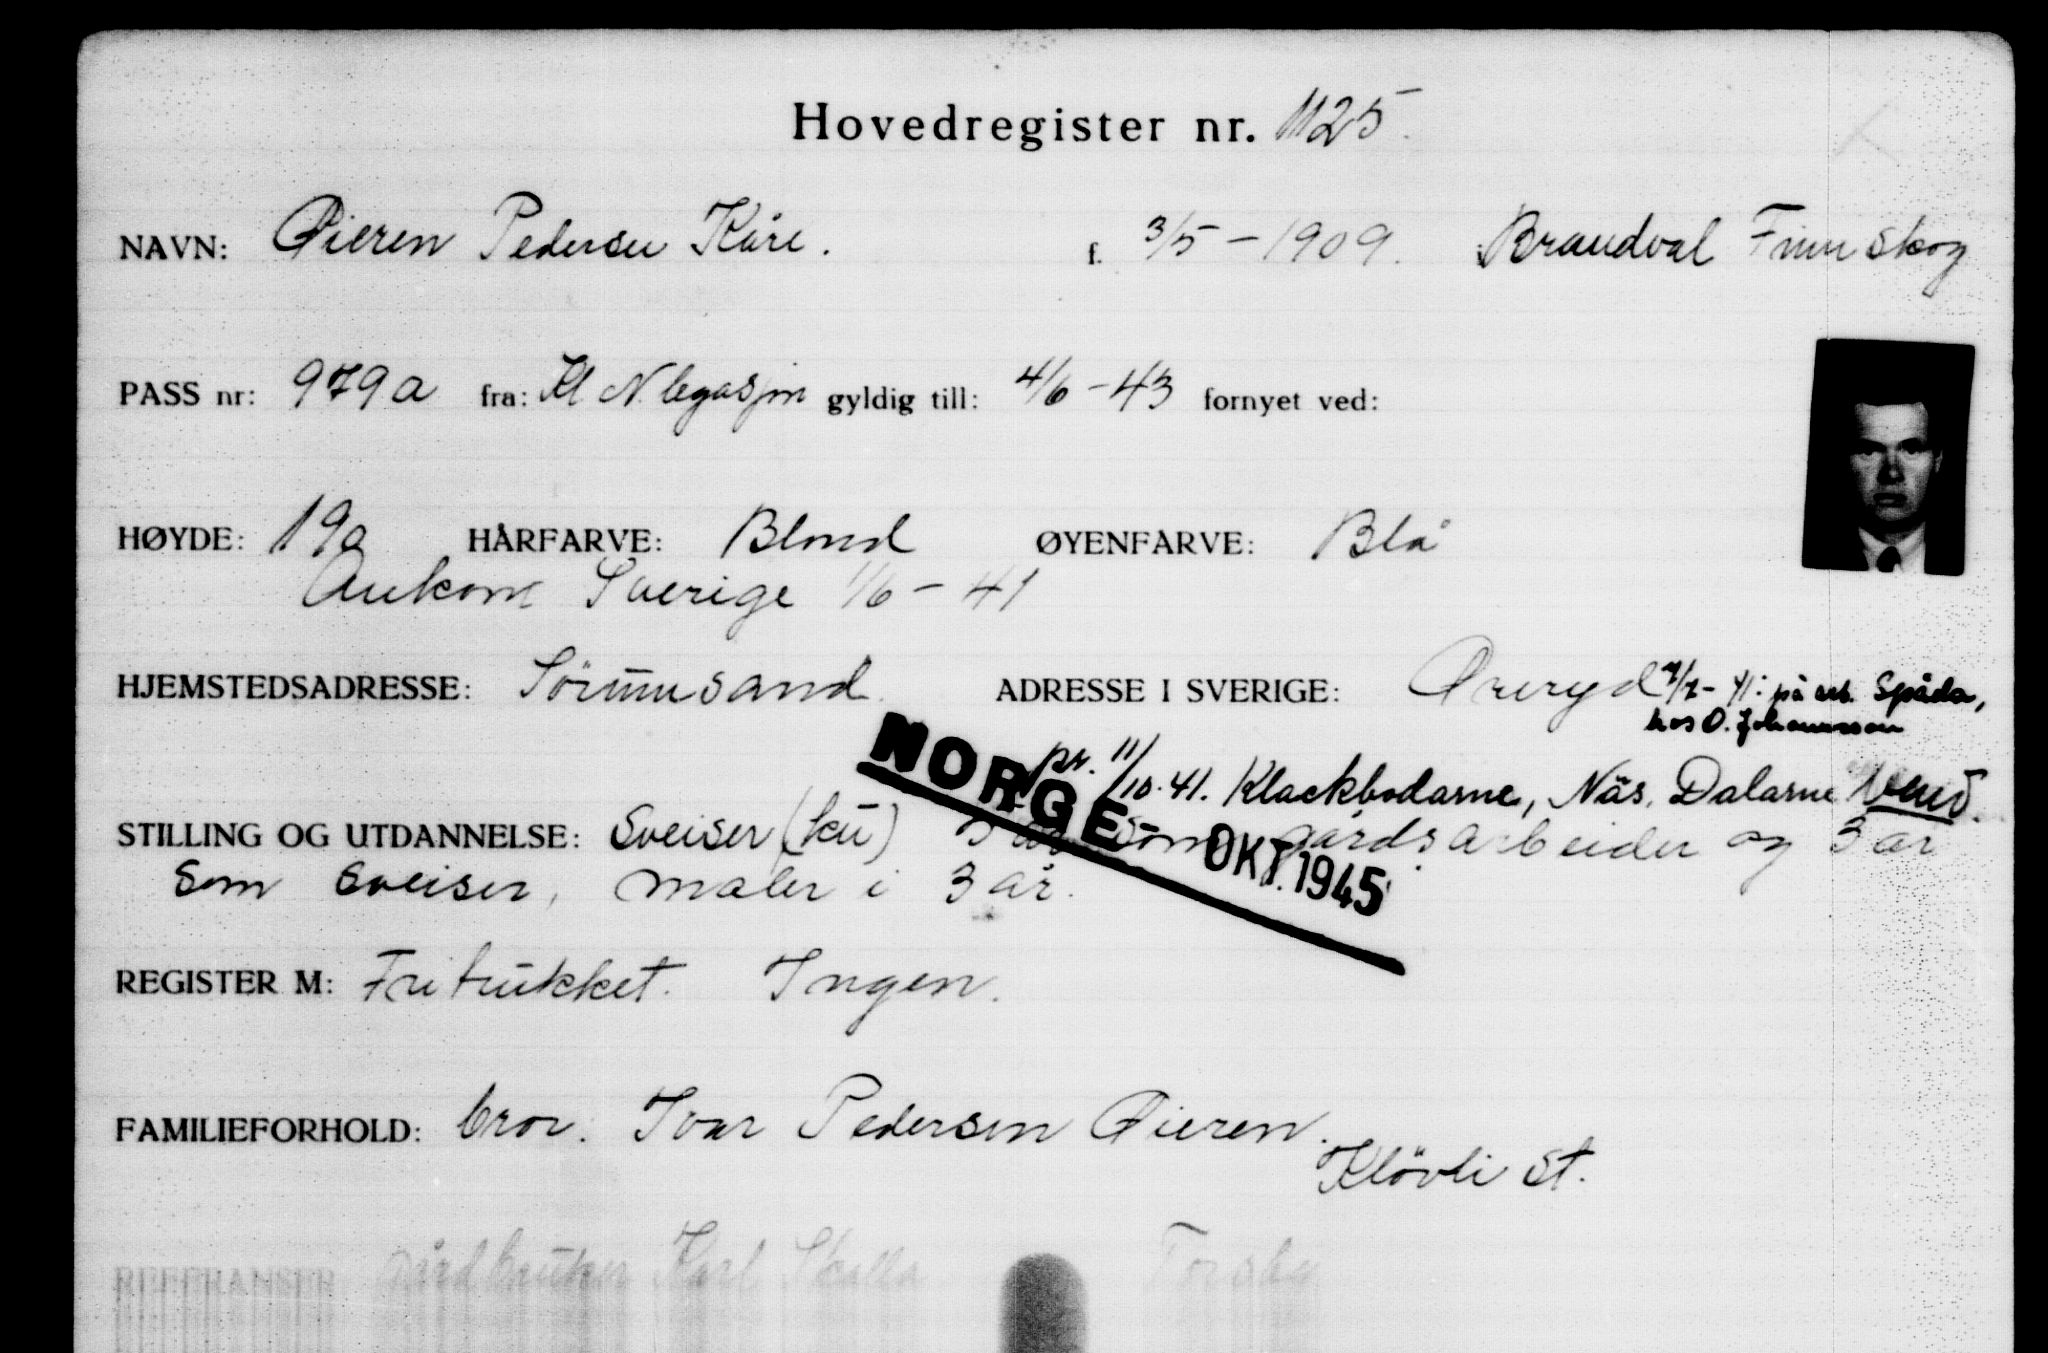 Hovedregister nr. 1125.
NAVN: Øieren Pedersen Kåre. f. 3/5-1909. i Brandval Finnskog
PASS nr: 979a fra: Kl N. legasjon gyldig till: 4/6-43 fornyet ved:
HØYDE: 190 HÅRFARVE: Blond ØYENFARVE: Blå
Ankom Sverige 1/6-41
HJEMSTEDSADRESSE: Sörumsand. ADRESSE I SVERIGE: Öreryd 7/7-41: på arb. Spåda,
hos O. Johannsson
pr. 11/10.41. Klackbodarne, Näs, Dalarne Vend.
NORGE - OKT. 1945
STILLING OG UTDANNELSE: Sveiser (ku) år som gårdsarbeider og 3 år
som sveiser, maler i 3 år.
REGISTER M: Fritukket. Ingen.
FAMILIEFORHOLD: bror. Ivar Pedersen Øieren.
Klövli st.
REFERANSER Gårdbruker Karl Skalla Torsby